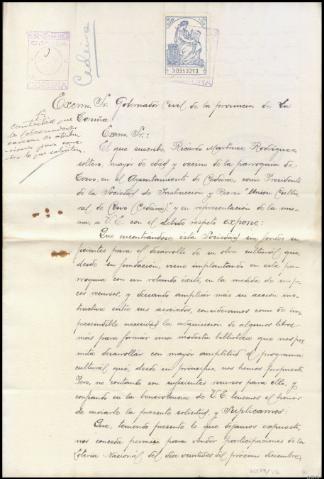 Cedeira
Excmo. Sr. Gobernador Civil de la provincia de La
Coruña
Excmo. Sr.:
El que suscribe Ricardo Martínez Rodríguez
soltero, mayor de edad y vecino de la parroquia de
Cervo, en el Ayuntamiento de Cedeira, como Presidente
de la Sociedad de Instrucción y Recreo "Unión Cultu-
ral de Cervo (Cedeira) y en representación de la mis-
ma, a V.E. con el debido respeto expone:
Que encontrándose esta Sociedad sin fondos su-
ficientes para el desarrollo de su obra cultural que,
desde su fundación, viene implantando en esta pa-
rroquia con un rotundo éxito, en la medida de sus po-
cos recursos, y deseando ampliar más su acción ins-
tructiva entre sus asociados, consideramos como de im-
prescindible necesidad la adquisición de algunos libros
más para formar una modesta biblioteca que nos per-
mita desarrollar con mayor amplitud el programa
cultural, que, desde un principio, nos hemos propuesto.
Pero, no contando con suficientes recursos para ello, y
confiando en la benevolencia de V.E. tenemos el honor
de enviarle la presente solicitud, y Suplicamos:
Que, teniendo presente lo que dejamos expuesto,
nos conceda permiso para vender participaciones de la
Lotería Nacional, del día veintidós del próximo diciembre,